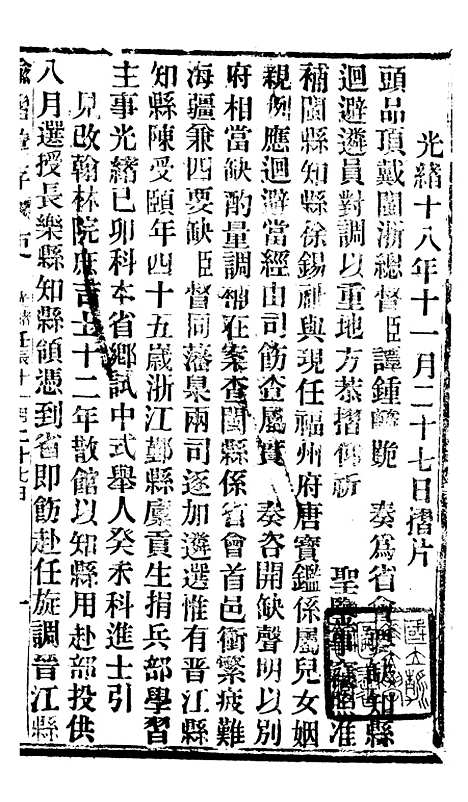 光緒十八年十一月二十七日摺片
頭品頂戴閩浙總督臣譚鍾麟跪 奏爲省會 知縣
迴避遴員對調以重地方恭摺仰祈 聖鑒事 准
補閩縣知縣徐錫 與現任福州府唐寶鑑係屬兒女姻
親例應迴避當經由司飭查屬實 奏咨開缺聲明以別
府相當缺酌量調補在案查閩縣係省會首邑衝繁疲難
海疆兼四要缺臣督同藩臬兩司逐加遴選惟有晉江縣
知縣陳受頤年四十五歲浙江鄞縣廩貢生捐兵部學習
主事光緒己卯科本省鄉試中式舉人癸未科進士引
見改翰林院庶吉士十二年散館以知縣用赴部投供
八月選授長樂縣知縣領憑到省即飭赴任旋調晉江縣
諭摺 存 一
國立